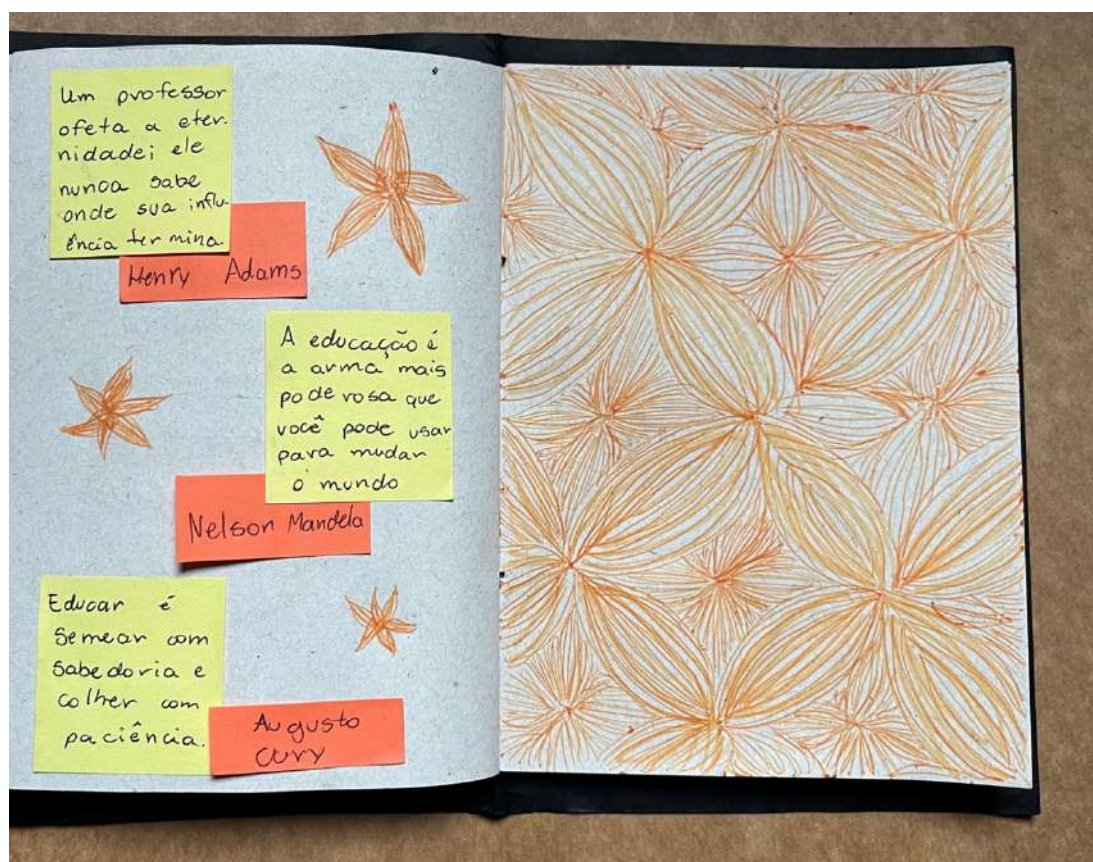 Um professor
ofeta a eter-
nidade; ele
nunca sabe
onde sua influ-
ência termina
Henry Adams
A educação é
a arma mais
poderosa que
você pode usar
para mudar
o mundo
Nelson Mandela
Educar é
semear com
sabedoria e
colher com
paciência.
Augusto
Cury